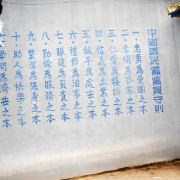 中國國民黨黨員守則
一、忠勇為愛國之本
二、孝順為齊家之本
三、仁愛為接物之本
四、信義為立業之本
五、和平為處世之本
六、禮節為治事之本
七、服從為負責之本
八、勤儉為服務之本
九、整潔為強身之本
十、助人為快樂之本
學問為濟世之本